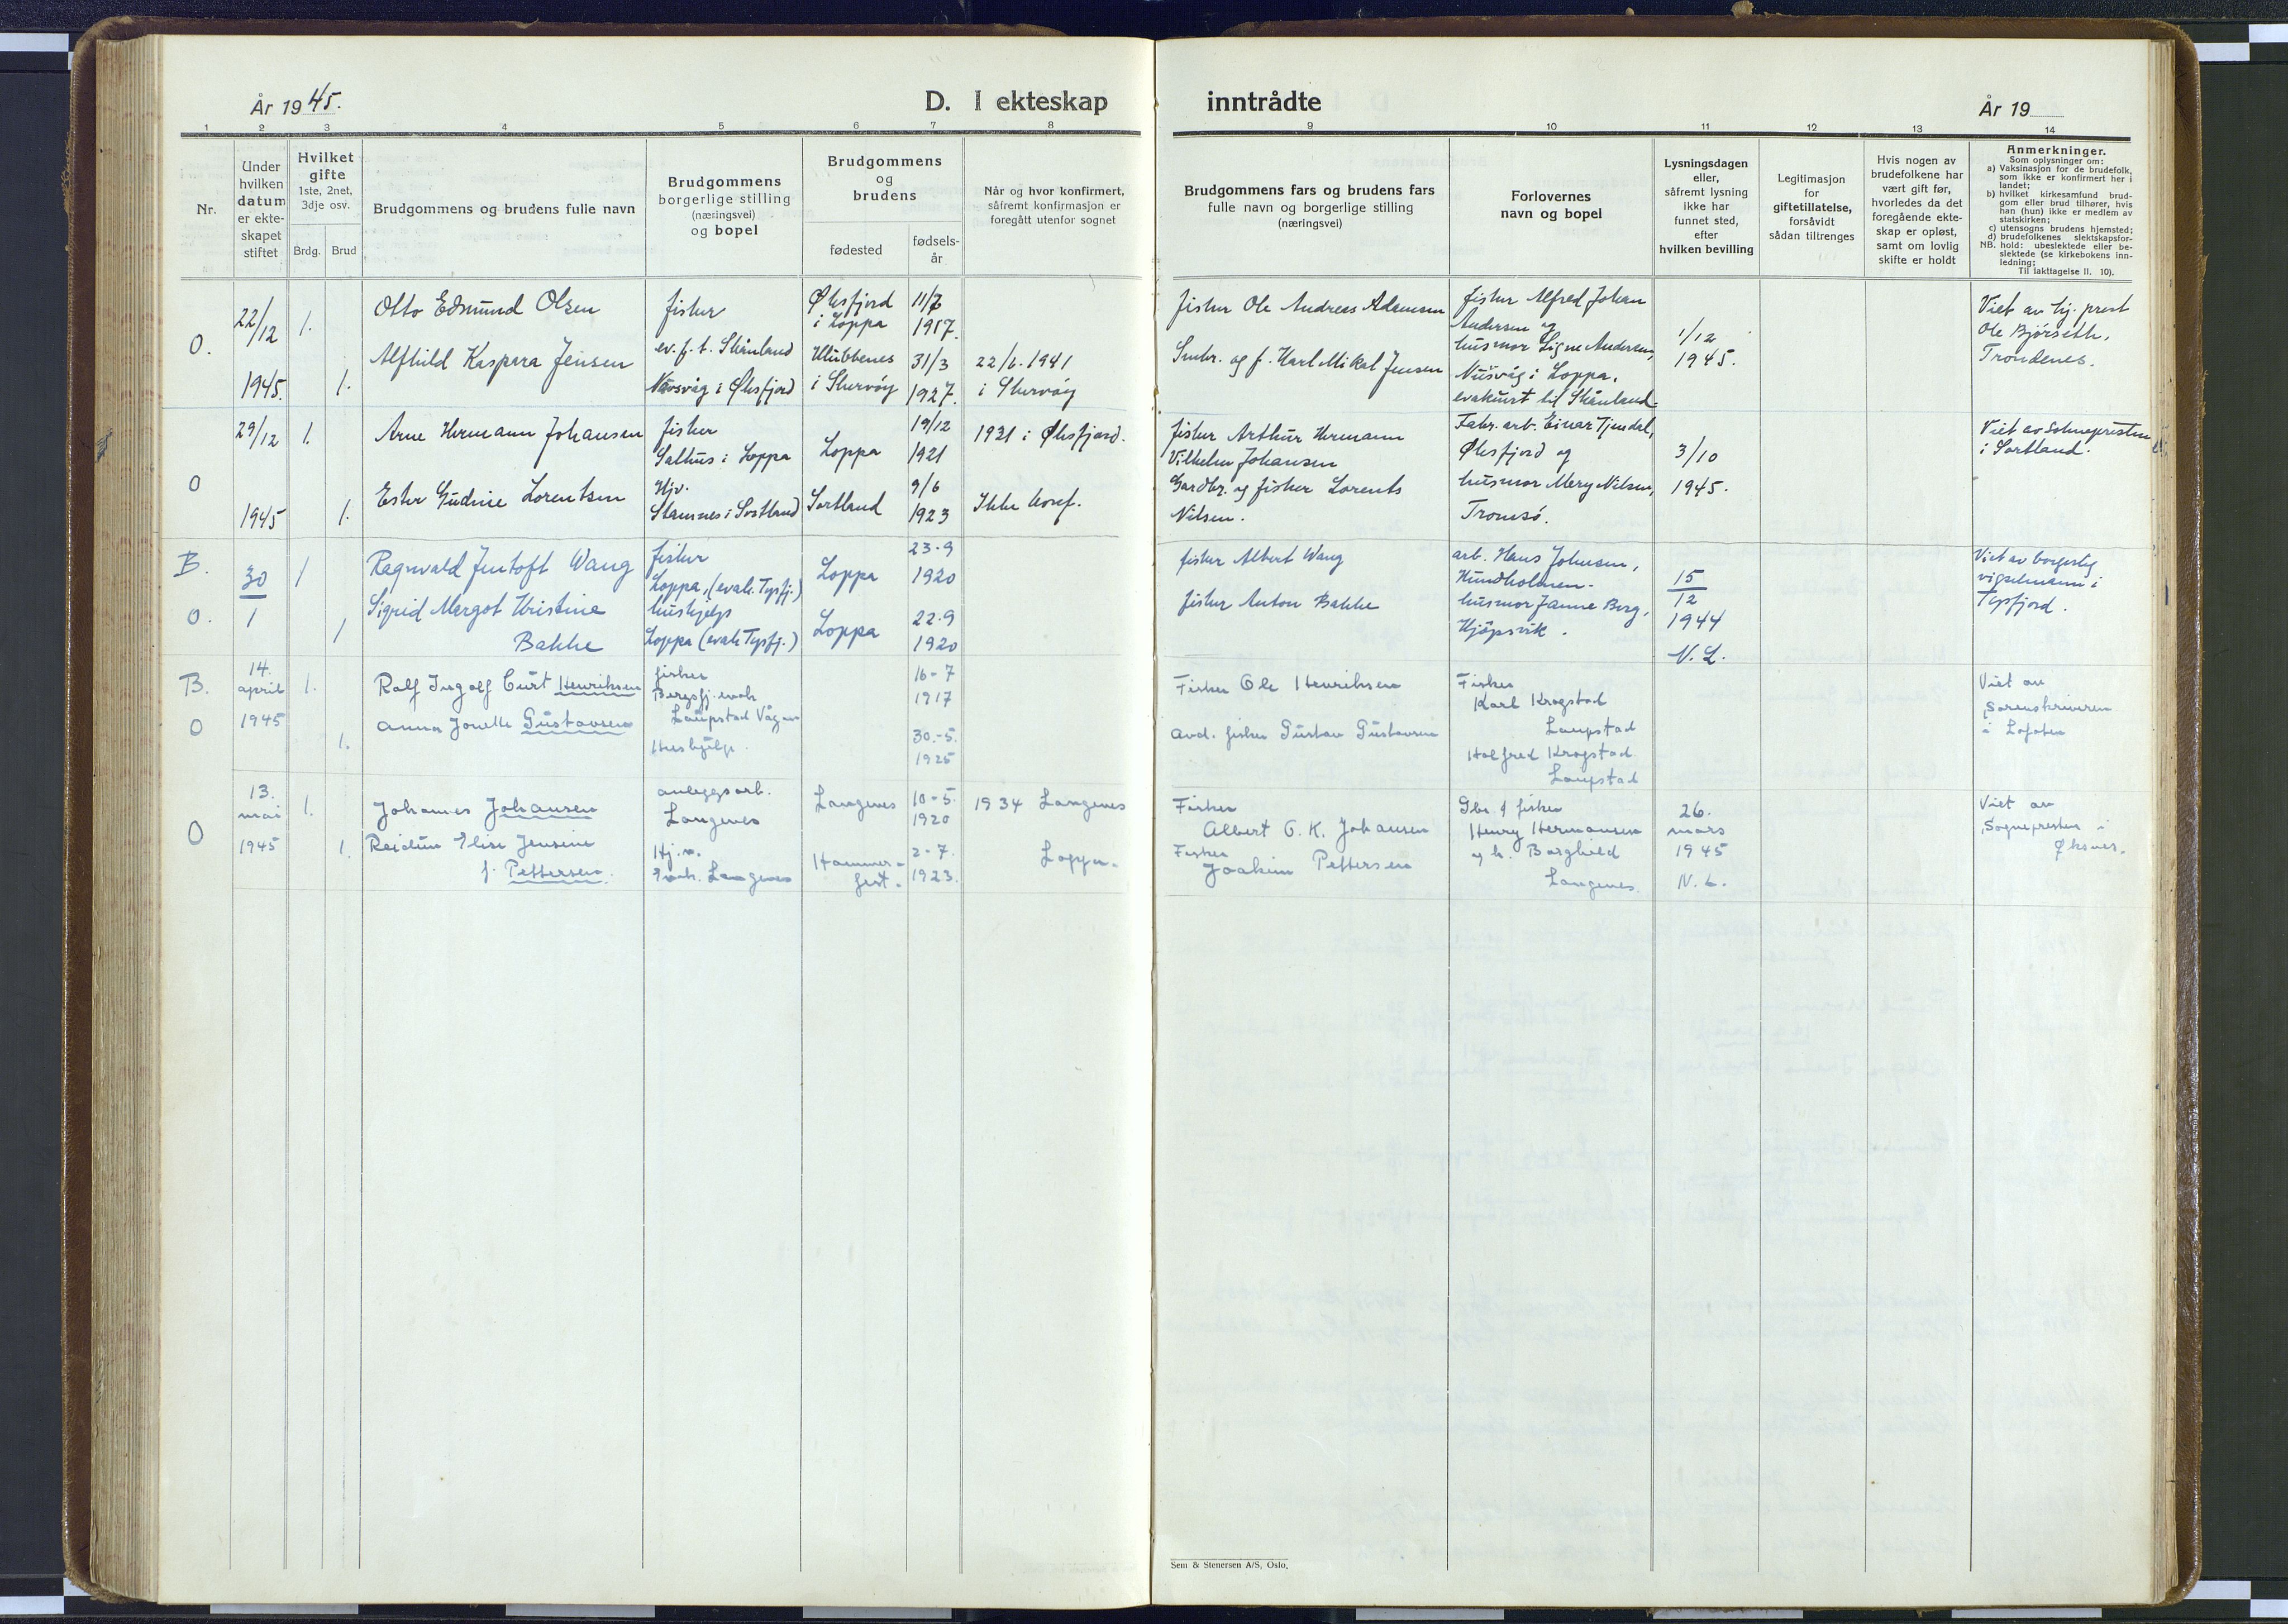 År 1945.
D. I ekteskap
inntrådte
År 19
1 2 3 4 5 6 7 8
9 10 11 12 13 14
Nr.
Under
hvilken
datum
er ekte-
skapet
stiftet
Hvilket
gifte
1ste, 2net,
3dje osv.
Brdg. Brud
Brudgommens og brudens fulle navn
Brudgommens
borgerlige stilling
(næringsvei)
og bopel
Brudgommens
og
brudens
fødested
fødsels-
år
Når og hvor konfirmert,
såfremt konfirmasjon er
foregått utenfor sognet
Brudgommens fars og brudens fars
fulle navn og borgerlige stilling
(næringsvei)
Forlovernes
navn og bopel
Lysningsdagen
eller,
såfremt lysning
ikke har
funnet sted,
efter
hvilken bevilling
Legitimasjon
for
giftetillatelse,
forsåvidt
sådan tiltrenges
Hvis nogen av
brudefolkene har
vært gift før,
hvorledes da det
foregående ekte-
skap er opløst,
samt om lovlig
skifte er holdt
Anmerkninger.
Som oplysninger om:
a) Vaksinasjon for de brudefolk,
som ikke er konfirmert her i
landet;
b) hvilket kirkesamfund brud-
gom eller brud tilhører, hvis
han (hun) ikke er medlem av
statskirken;
c) utensogns brudens hjemsted;
d) brudefolkenes slektskapsfor-
NB. hold: ubeslektede eller be-
slektede (se kirkebokens inn-
ledning;
Til iakttagelse II. 10).
O.
22/12
1945.
1.
1.
Otto Edmund Olsen
Alfhild Kaspara Jensen
fisker
ev. f. t. Skånland
i Øksfjord
Øksfjord
i Loppa
Klubbenes
i Skervøy
11/7
1917.
31/3
1927.
22/6. 1941
i Skervøy
fisker Ole Andreas Adamsen
Småbr. og f. Karl Mikal Jensen
fisker Alfred Johan
Andersen og
husmor Signe Andersen,
Nusvåg i Loppa.
evakuert til Skånland.
1/12
1945.
Viet av hj. prest
Ole Bjørseth,
Trondenes.
O
29/12
1945
1.
1.
Arne Hermann Johansen
Ester Gudine Lorentsen
fisker
Salhus i Loppa
Hjv.
Stamnes i Sortland
Loppa
Sortland
19/12
1921
9/6
1923
1931 i Øksfjord.
Ikke konf.
fisker Arthur Hermann
Vilhelm Johansen
Gardbr. og fisker Lorents
Nilsen.
Fabr. arb. Einar Tjendal,
Øksfjord og
husmor Mery Nilsen,
Tromsø.
3/10
1945.
Viet av Sokneprestun
i Sortland.
B.
O.
30
1
1
1
Ragnvald Jentoft Wang
Sigrid Margot Kristine
Bakke
fisker
Loppa, (evak. Tysfj.)
hushjelp
Loppa (evak Tysfj.)
Loppa
Loppa
23.9
1920
22.9
1920
fisker Albert Wang
fisker Anton Bakke
arb. Hans Johnsen,
Hundholmen.
husmor Janne Berg,
Kjöpsvik.
15
12
1944
N. L.
Viet av borgerlig
vigselmann i
Tysfjord.
B.
O
14.
april
1945
1.
1.
Ralf Ingolf Curt Henriksen
Anna Jonette Gustavsen
fisker
Bergsfj. evak
Laupstad Vågan
Hushjelp.
16-7
1917
30.-5.
1925
Fisker Ole Henriksen
avd. fisker Gustav Gustavsen
Fisker
Karl Krogstad
Laupstad
Halfred Krogstad
Laupstad
Viet av
Sorenskriveren
i Lofoten
O
13.
mai
1945
1.
1.
Johannes Johansen
Reidun Elise Jensine
f. Pettersen.
anleggsarb.
Langenes
Hj. v.
Evak. Langenes
Langenes
Hammer-
fest.
10-5.
1920
2-7.
1923.
1934 Langenes
Loppa.
Fisker
Albert O. K. Johansen
Fisker
Joakim Pettersen
Gbr. & fisker
Henry Hermansen
og h. Borghild
Langenes.
26.
mars
1945
N. L.
Viet av
Sognepresten i
Øksnes.
Sem & Stenersen A/S, Oslo.